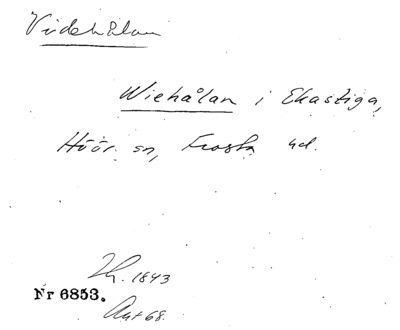 Videhålan
Wiehålan i Ekastiga,
Höör sn, Frosta hd.
1843
Nr 6853.
Ant 68.